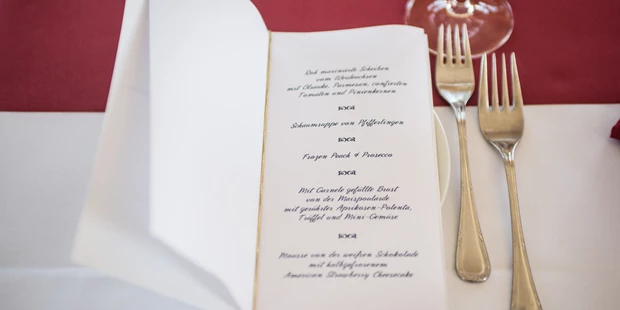 Roh marinierte Scheiben
vom Weideochsen
mit Olivenöl, Parmesan, confierten
Tomaten und Pinienkernen
Schaumsuppe von Pfifferlingen
Frozen Peach & Prosecco
Mit Garnele gefüllte Brust
von der Maispoularde
mit gerührter Aprikosen-Polenta,
Trüffel und Mini-Gemüse
Mousse von der weißen Schokolade
mit halbgefrorenem
American Strawberry Cheesecake